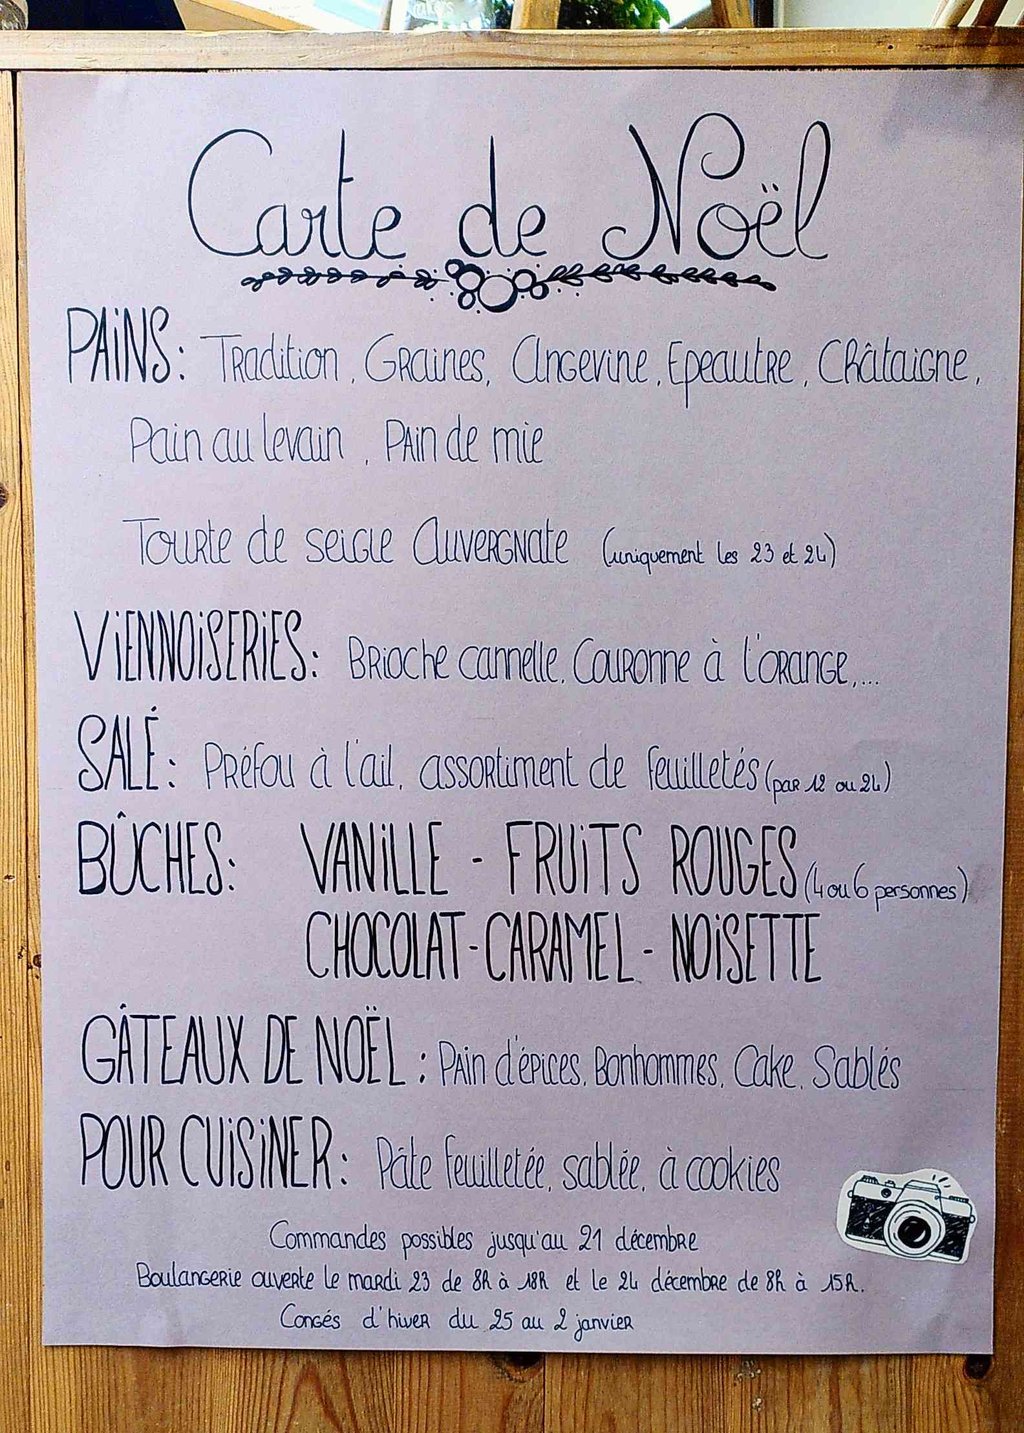 Carte de Noël
PAiNS: Tradition, Graines, Angevine, Epeautre, Châtaigne,
Pain au levain, Pain de mie
Tourte de seigle Auvergnate (uniquement les 23 et 24)
ViENNOiSERiES: Brioche cannelle, Couronne à l'orange,...
SALÉ: Préfou à l'ail, assortiment de feuilletés (par 12 ou 24)
BÛCHES: VANiLLE - FRUiTS ROUGES (4 ou 6 personnes)
CHOCOLAT - CARAMEL - NOiSETTE
GÂTEAUX DE NOËL: Pain d'épices, Bonhommes, Cake, Sablés
POUR CUiSiNER: Pâte feuilletée, sablée, à cookies
Commandes possibles jusqu'au 21 décembre
Boulangerie ouverte le mardi 23 de 8h à 18h et le 24 décembre de 8h à 15h.
Congés d'hiver du 25 au 2 janvier